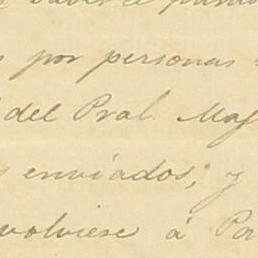 por personas
del Pral. May
enviados; y
volviese á Por